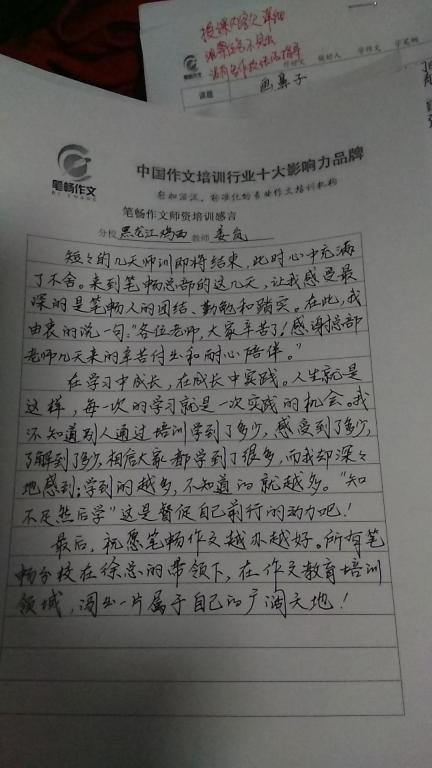 授课内容人详细
课题
画鼻子
笔畅作文
BI CHANG
中国作文培训行业十大影响力品牌
标准化的专业作文培训机构
笔畅作文师资培训感言
分校 黑龙江鸡西 教师 姜岚
短短的几天师训即将结束,此时心中充满
了不舍。来到笔畅总部的这几天,让我感受最
深的是笔畅人的团结、勤勉和踏实。在此,我
由衷的说一句:“各位老师,大家辛苦了!感谢总部
老师几天来的辛苦付出和耐心陪伴。”
在学习中成长,在成长中实践。人生就是
这样,每一次的学习就是一次实践的机会。我
不知道别人通过培训学到了多少,感受到了多少,
了解到了多少,相信大家都学到了很多,而我却深々
地感到:学到的越多,不知道的就越多。“知
不足然后学”这是督促自己前行的动力吧!
最后,祝愿笔畅作文越办越好。所有笔
畅分校在徐总的带领下,在作文教育培训
领域,闯出一片属于自己的广阔天地!